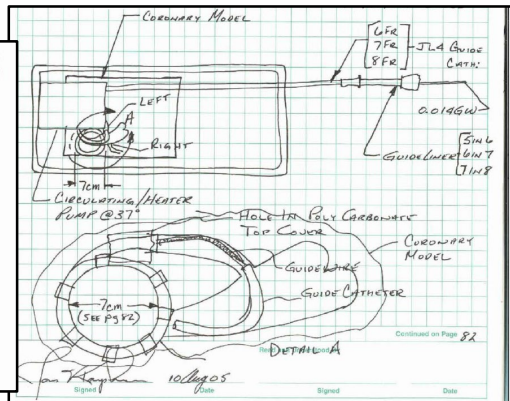 CORONARY MODEL
6FR
7FR
8FR
JL4 GUIDE CATH:
LEFT
A
B
RIGHT
0.014GW
GUIDELINER
5IN6
6IN7
7IN8
7cm
CIRCULATING/HEATER
PUMP @37°
HOLE IN POLY CARBONATE
TOP COVER
CORONARY
MODEL
GUIDEWIRE
GUIDE CATHETER
7cm
(SEE pg 82)
Continued on Page 82
DETAIL A
10 Aug 05
Signed
Date
Signed
Date